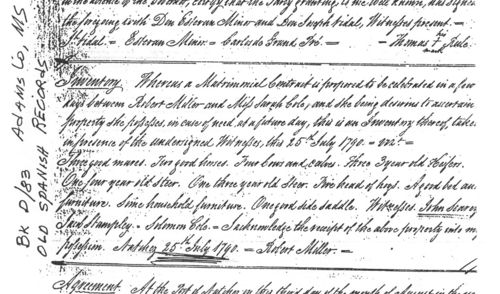 BK D/83 ADAMS CO, MS
OLD SPANISH RECORDS
the foregoing with Don Estevan Minor and Don Joseph Vidal, Witnesses present. =
Jh Vidal. = Estevan Minor. = Carlos de Grand Pré. = - Thomas Rule.
Inventory. Whereas a Matrimonial Contract is proposed to be celebrated in a few
days between Robert Miller and Miss Sarah Cole, and she being desirous to ascertain
property she possesses, in case of need at a future day, this is an Inventory thereof, taken
in presence of the undersigned Witnesses, this 25th July 1790. = viz. =
good mares. Two good horses. Four Cows and calves. Three 3 year old Heifers.
One four year old steer. One three year old Steer. Five head of hogs. A good bed and
furniture. Some household furniture. One good side saddle. Witnesses. John
Stampley. = Solomon Cole. = I acknowledge the receipt of the above property into my
possession. Natchez 25th July 1790. = Robert Miller. =
Agreement. At the Post of Natchez in this third day of the month of August in the